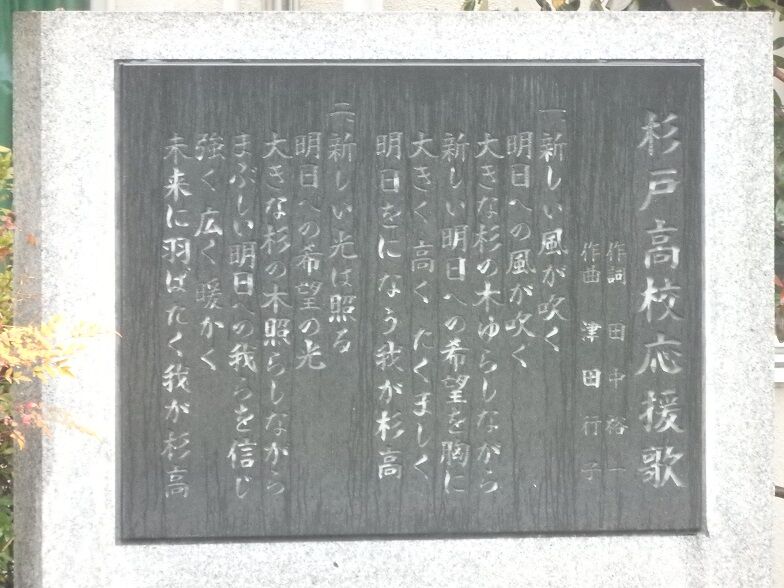 杉戸高校応援歌
作詞 田中裕一
作曲 津田行子
一、新しい風が吹く
明日への風が吹く
大きな杉の木ゆらしながら
新しい明日への希望を胸に
大きく高くたくましく
明日をになう我が杉高
二、新しい光は照る
明日への希望の光
大きな杉の木照らしながら
まぶしい明日への我らを信じ
強く広く暖かく
未来に羽ばたく我が杉高